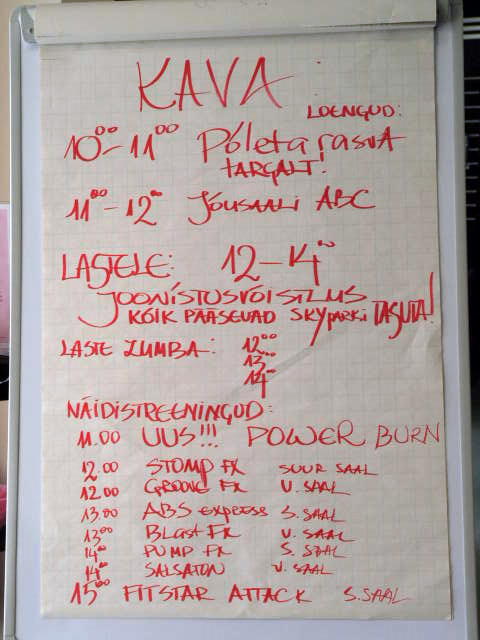 KAVA
LOENGUD:
10⁰⁰-11⁰⁰ Põleta rasva
TARGALT!
11⁰⁰-12⁰⁰ Jõusaali ABC
LASTELE: 12-14⁰⁰
JOONISTUSVÕISTLUS
KÕIK PÄÄSEVAD SKYPARKi TASUTA!
LASTE ZUMBA: 12⁰⁰
13⁰⁰
14⁰⁰
NÄIDISTREENINGUD:
11.00 UUS!!! POWER BURN
12.00 STOMP FX SUUR SAAL
12.00 GROOVE FX V. SAAL
13.00 ABS express S. SAAL
13⁰⁰ BLAST FX V. SAAL
14⁰⁰ PUMP FX S. SAAL
14⁰⁰ SALSATON V. SAAL
15⁰⁰ FITSTAR ATTACK S. SAAL